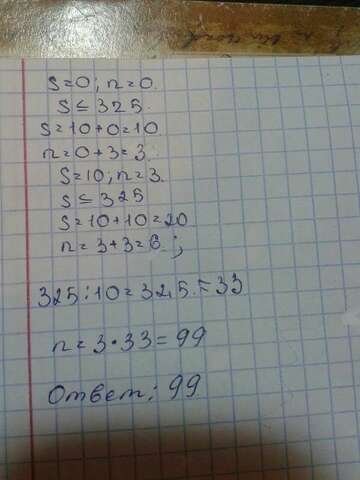 s=0; n=0.
s≤325.
s=10+0=10
n=0+3=3.
s=10; n=3.
s≤325
s=10+10=20
n=3+3=6.;
325:10=32,5.≈33
n=3·33=99
Ответ: 99